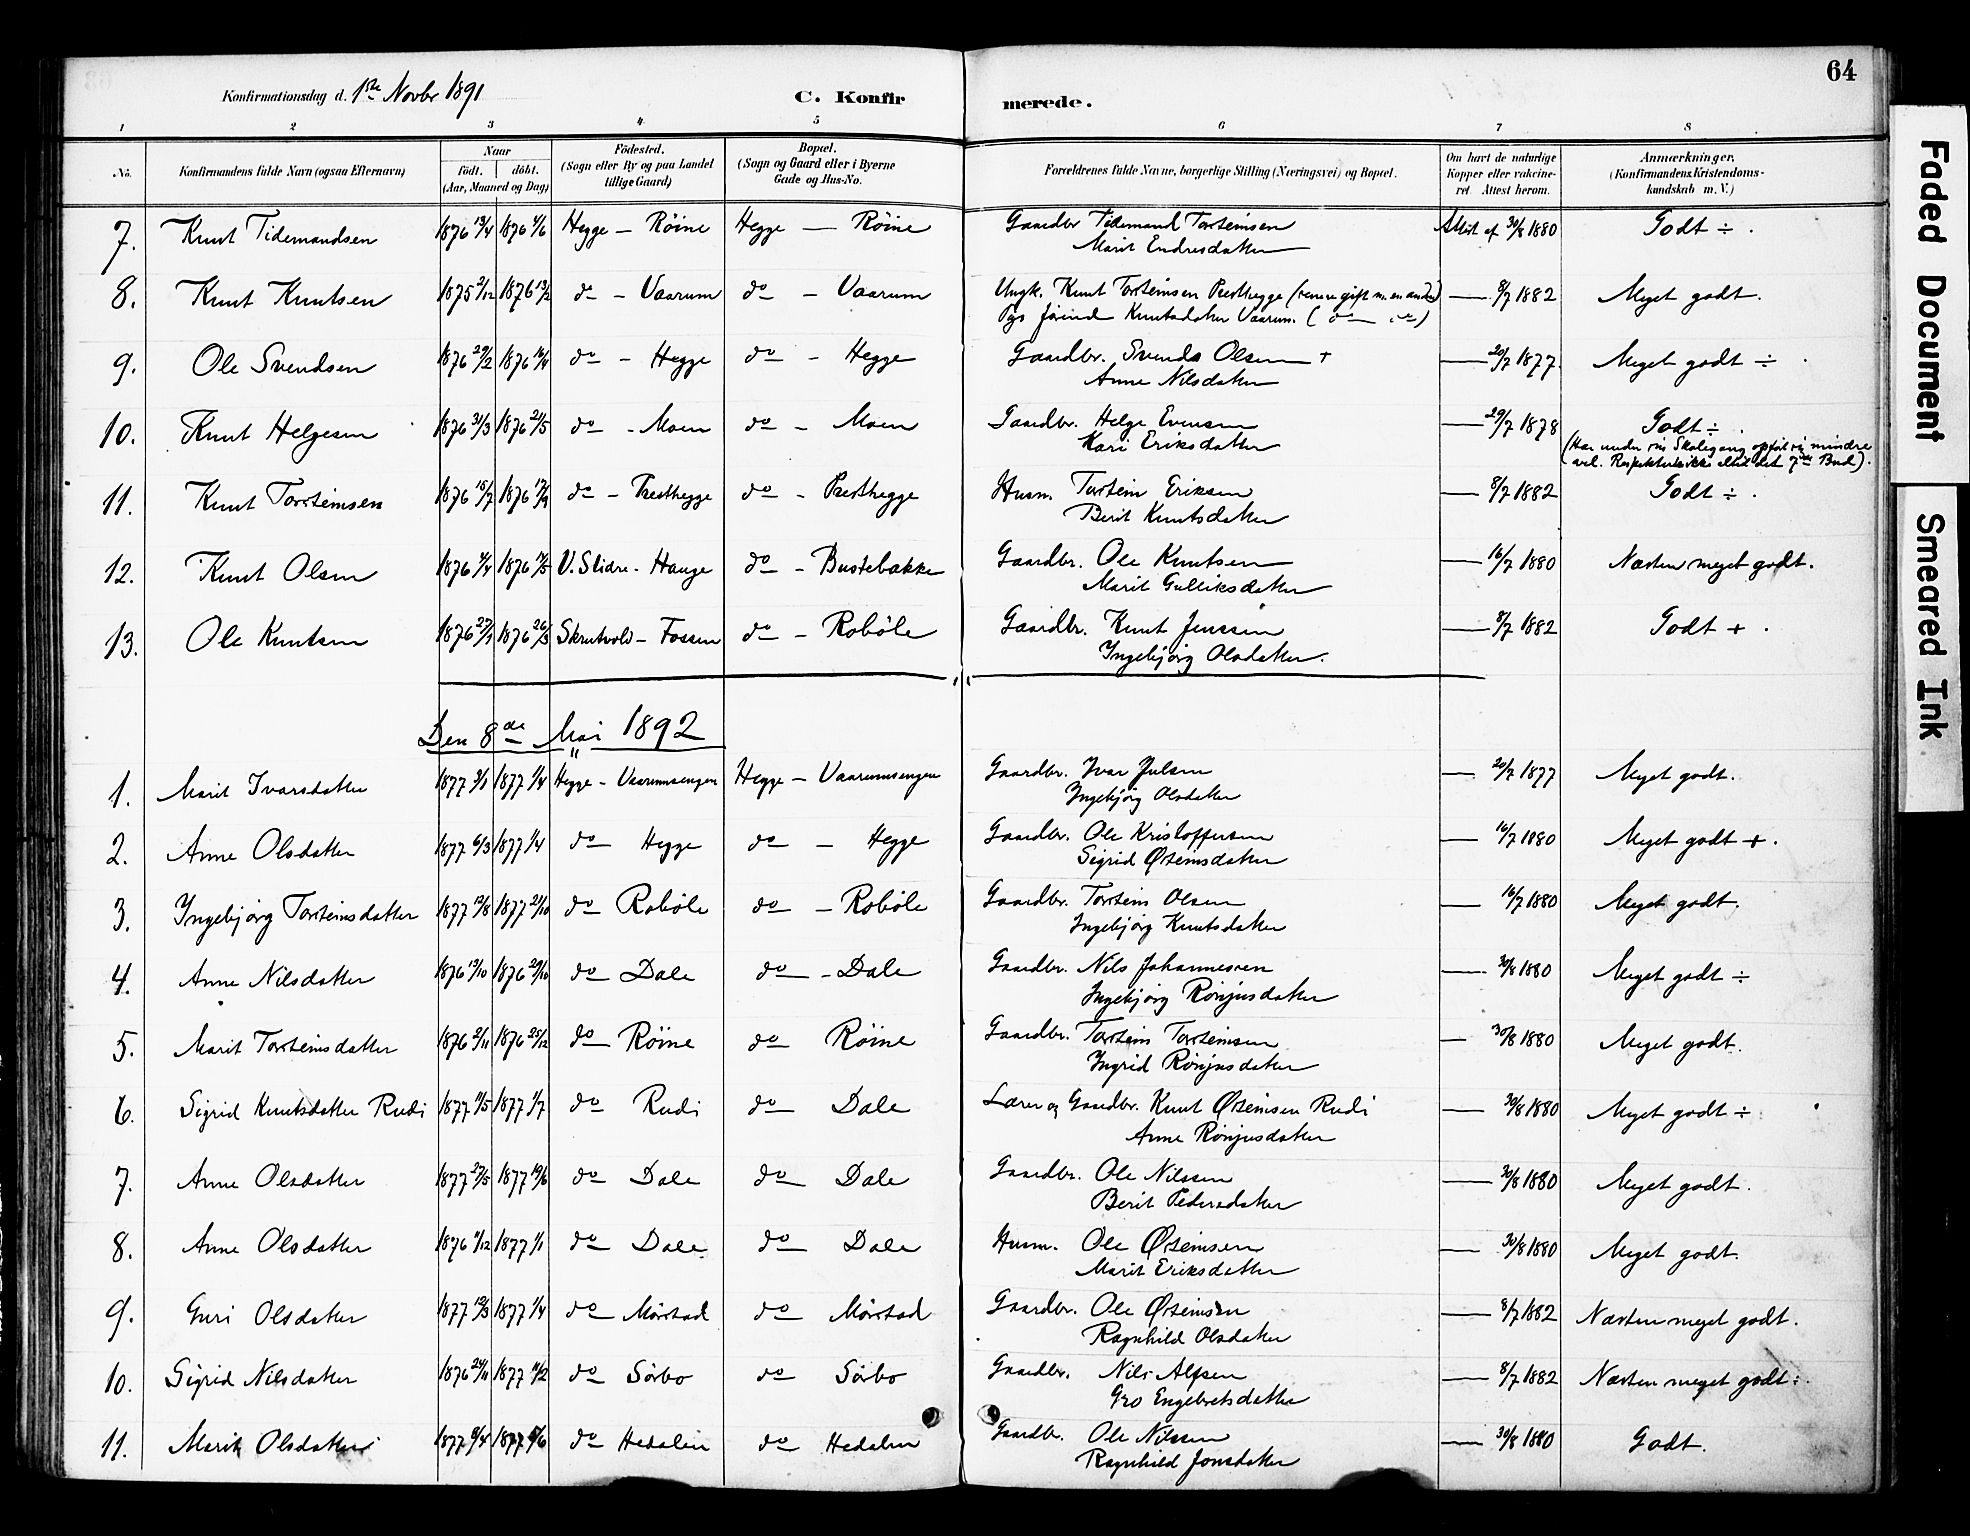 64
Konfirmationsdag d. 1ste Novbr 1891
C. Konfirmerede.
1 2 3 4 5 6 7 8
No. Konfirmandens fulde Navn (ogsaa Efternavn) Naar født. døbt. (Aar, Maaned og Dag) Fødested. (Sogn eller By og paa Landet tillige Gaard) Bopæl. (Sogn og Gaard eller i Byerne Gade og Hus-No. Forældrenes fulde Navne, borgerlige Stilling (Næringsvei) og Bopæl. Om havt de naturlige Kopper eller vaccineret. Attest herom. Anmærkninger. (Konfirmandens Kristendomskundskab m. V.)
7. Knut Tidemandsen 1876 13/4 1876 4/6 Hegge — Röine Hegge — Röine Gaardbr Tidemand Torsteinsen Attest af 30/8 1880 Godt ÷ .
Marit Endresdatter
8. Knut Knutsen 1875 2/12 1876 13/2 do - Vaarum do - Vaarum Ungk. Knut Torsteinsen Presthegge (senere gift m. en anden) — 8/7 1882 Meget godt.
Pge Jörind Knutsdatter Vaarum. (do do)
9. Ole Svendsen 1876 29/2 1876 16/4 do - Hegge do - Hegge Gaardbr. Svend Olsen + — 20/7 1877. Meget godt ÷
Anne Nilsdatter
10. Knut Helgesen 1876 31/3 1876 21/5 do - Moen do - Moen Gaardbr. Helge Evensen — 29/7 1878 Godt ÷ .
Kari Eriksdatter (Har under sin Skolegang opført sig mindre
vel. Respekterte ikke altid det 7de Bud).
11. Knut Torsteinsen 1876 15/7 1876 17/9 do - Presthegge do - Presthegge Husm. Torstein Eriksen — 8/7 1882 Godt ÷ .
Berit Knutsdatter
12. Knut Olsen 1876 4/4 1876 14/5 V. Slidre - Hauge do - Bustebakke Gaardbr. Ole Knutsen — 16/7 1880 Næsten meget godt.
Marit Gulliksdatter
13. Ole Knutsen 1876 27/1 1876 26/3 Skrutvold - Fossen do - Roböle Gaardbr. Knut Jenssen — 8/7 1882 Godt + .
Ingebjörg Olsdatter.
Den 8de Mai 1892
1. Marit Ivarsdatter 1877 3/1 1877 1/4 Hegge - Vaarumsengen Hegge - Vaarumsengen Gaardbr. Ivar Julsen — 20/7 1877 Meget godt.
Ingebjörg Olsdatter
2. Anne Olsdatter 1877 6/3 1877 1/4 do Hegge do - Hegge Gaardbr. Ole Kristoffersen — 16/7 1880 Meget godt + .
Sigrid Østeinsdatter
3. Ingebjörg Torsteinsdatter 1877 12/8 1877 21/10 do Roböle do - Roböle Gaardbr. Torstein Olsen — 16/7 1880 Meget godt.
Ingebjörg Knutsdatter
4. Anne Nilsdatter 1876 13/10 1876 29/10 do Dale do - Dale Gaardbr. Nils Johannessen — 30/8 1880 Meget godt ÷
Ingebjörg Rönjusdatter
5. Marit Torsteinsdatter 1876 2/11 1876 25/12 do Röine do Röine Gaardbr. Torstein Torsteinsen — 30/8 1880 Meget godt.
Ingrid Rönjusdatter
6. Sigrid Knutsdatter Rudi 1877 11/5 1877 1/7 do Rudi do Dale Lærer og Gaardbr. Knut Østeinsen Rudi — 30/8 1880 Meget godt ÷
Anne Rönjusdatter
7. Anne Olsdatter 1877 27/5 1877 19/6 do Dale do Dale Gaardbr. Ole Nilssen — 30/8 1880 Meget godt.
Berit Pedersdatter
8. Anne Olsdatter 1876 11/12 1877 1/1 do Dale do Dale Husm. Ole Østeinsen — 30/8 1880 Meget godt.
Marit Eriksdatter
9. Guri Olsdatter 1877 12/3 1877 1/4 do Mörstad do Mörstad Gaardbr. Ole Østeinsen — 8/7 1882 Næsten meget godt.
Ragnhild Olsdatter
10. Sigrid Nilsdatter 1876 24/11 1877 11/2 do Sörbo do Sörbo Gaardbr. Nils Alfsen — 8/7 1882 Næsten meget godt.
Gro Engebretsdatter
11. Marit Olsdatter 1877 8/4 1877 do Hedalen do Hedalen Gaardbr. Ole Nilssen — 30/8 1880 Godt.
Ragnhild Jonsdatter
Faded Document
Smeared Ink